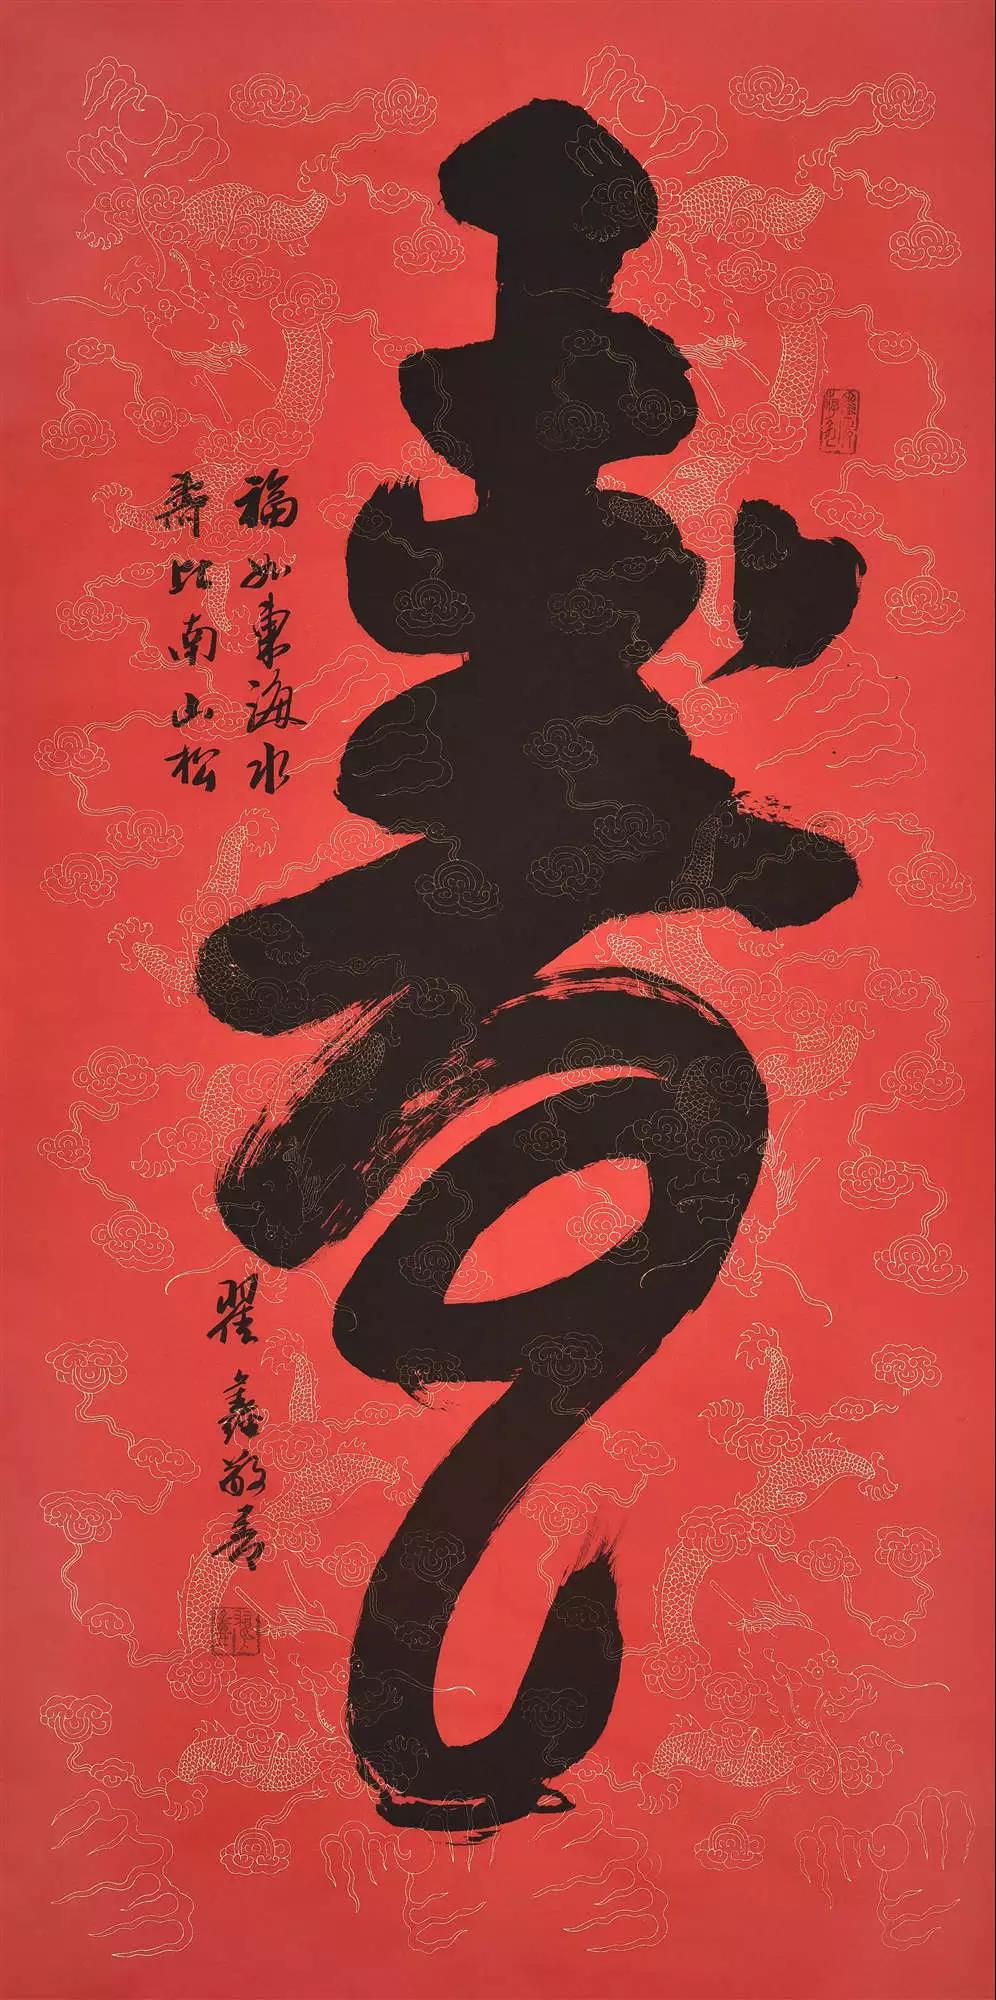 壽
福如東海水
壽比南山松
翟鑫敬書